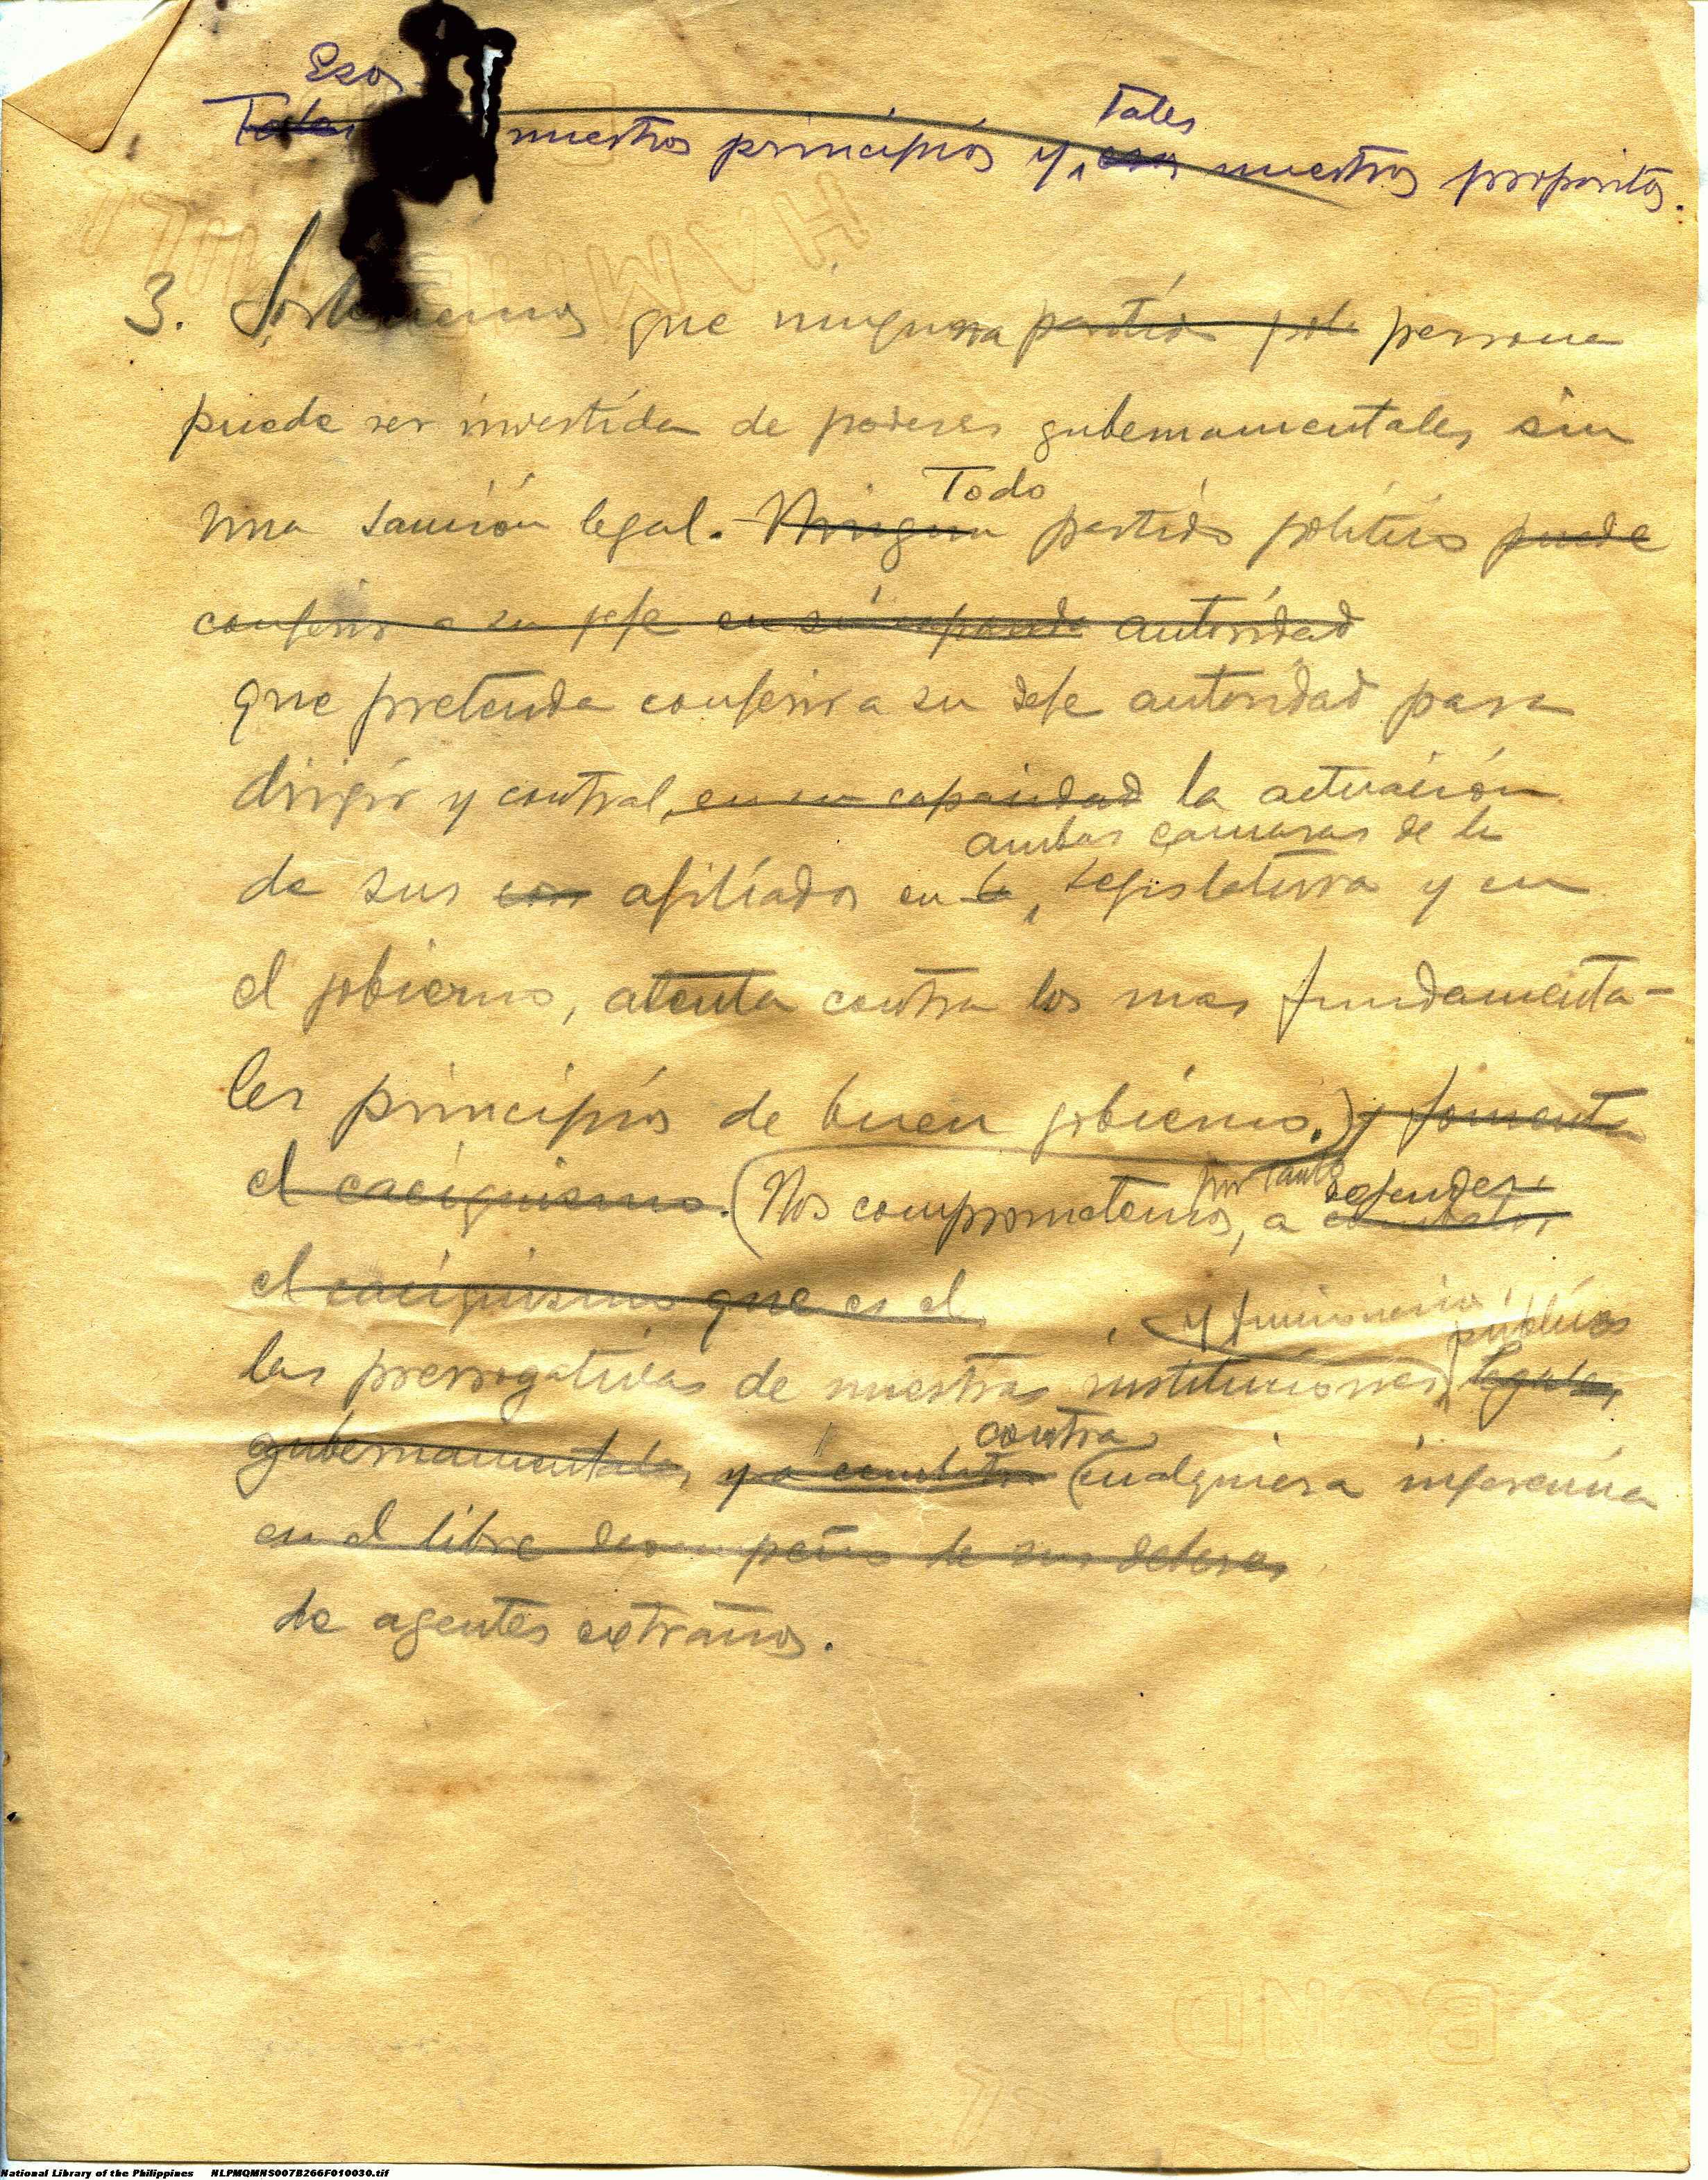 Esos
nuestros principios y, tales nuestros propositos.
3. Sostenemos que ninguna partido persona
puede ser investida de poderes gubernamentales sin
una sanción legal. Ningun Todo partido político puede
conferir a su jefe autoridad
que pretenda conferir a su jefe autoridad para
dirigir y control en su capacidad la actuación
ambas camaras de la
de sus con afiliados en la, Legislatura y en
el gobierno, atenta contra los mas fundamenta-
les principios de buen gobierno. y fomenta
el caciquismo. (Nos comprometemos, por tanto a defender
el caciquismo que es el
y funcionarios públicos
las prerrogativas de nuestras instituciones legales,
contra
gubernamentales, y a combatir cualquiera ingerencia
en el libre desempeño de sus deberes
de agentes extraños.
HAMMERMILL
BOND
National Library of the Philippines NLPMQMNS007B266F010030.tif